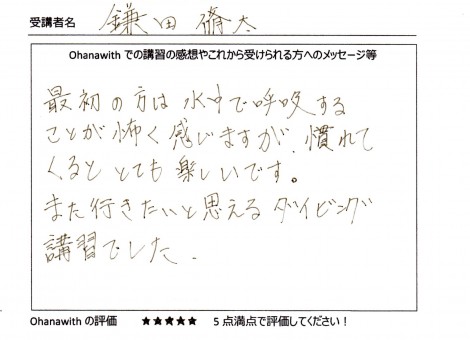 受講者名 鎌田脩太
Ohanawith での講習の感想やこれから受けられる方へのメッセージ等
最初の方は水中で呼吸する
ことが怖く感じますが、慣れて
くるととても楽しいです。
また行きたいと思えるダイビング
講習でした.
Ohanawith の評価 ★★★★★ 5 点満点で評価してください！